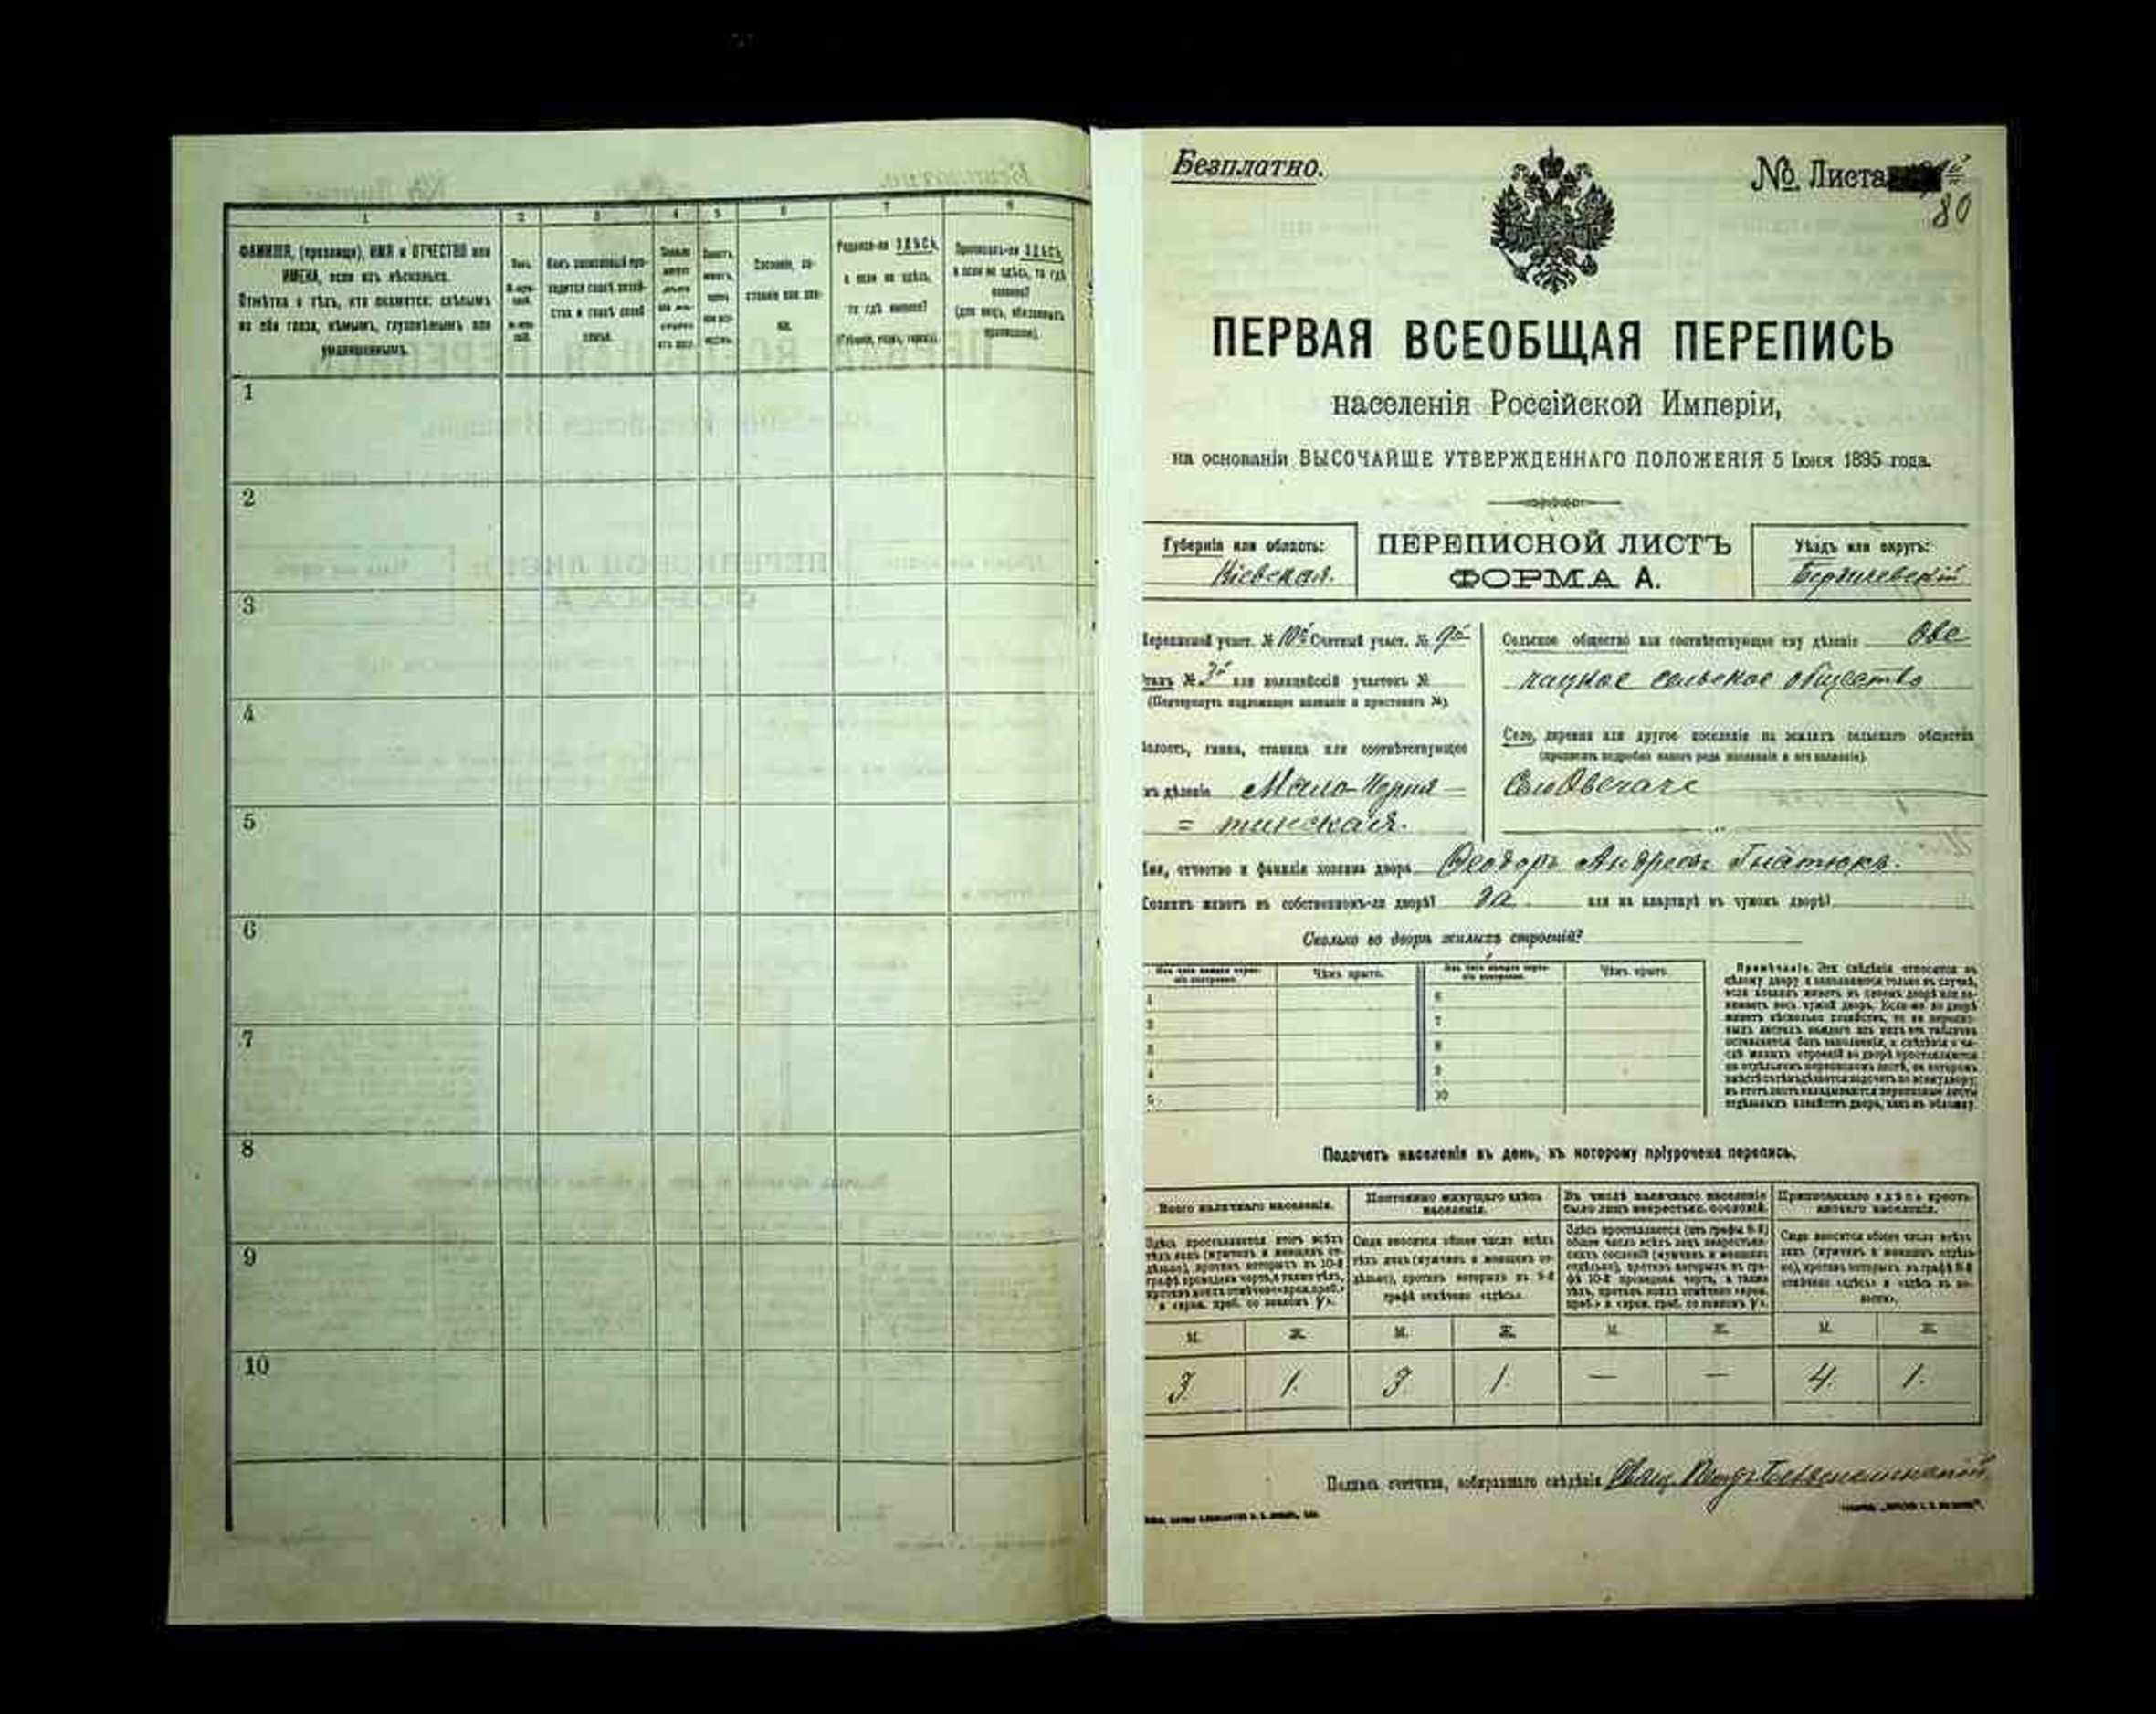 1 2 3 4 5 6 7 8
ФАМИЛІЯ, (прозвище), ИМЯ и ОТЧЕСТВО или
ИМЕНА, если ихъ нѣсколько.
Отмѣтка о тѣхъ, кто окажется: слѣпымъ
на оба глаза, нѣмымъ, глухонѣмымъ или
умалишеннымъ.
Какъ записанный при-
ходится главѣ хозяй-
ства и главѣ своей
семьи.
Сословіе, со-
стояніе или зва-
ніе.
Родился-ли ЗДѢСЬ,
а если не здѣсь,
то гдѣ именно?
(Губернія, уѣздъ, городъ).
Приписанъ-ли ЗДѢСЬ,
а если не здѣсь, то гдѣ
именно?
(для лицъ, обязанныхъ
припискою).
1
2
3
4
5
6
7
8
9
10
Безплатно.
№ Листа
80
ПЕРВАЯ ВСЕОБЩАЯ ПЕРЕПИСЬ
населенія Россійской Имперіи,
на основаніи ВЫСОЧАЙШЕ УТВЕРЖДЕННАГО ПОЛОЖЕНІЯ 5 Іюня 1895 года.
Губернія или область:
Кіевская.
ПЕРЕПИСНОЙ ЛИСТЪ
ФОРМА А.
Уѣздъ или округъ:
Бердичевскій
Переписной участ. № 10й Счетный участ. № 9й
Станъ № 3й или полицейскій участокъ №
(Подчеркнуть надлежащее названіе и проставить №).
Волость, гмина, станица или соотвѣтствующее
имъ дѣленіе Мало-Черня-
= тинская.
Сельское общество или соотвѣтствующее ему дѣленіе Ове
чацкое сельское общество
Село, деревня или другое поселеніе на земляхъ сельскаго общества
(прописать подробно какого рода поселеніе и его названіе).
Село Овечаче
Имя, отчество и фамилія хозяина двора Ѳеодоръ Андреевъ Гнатюкъ.
Хозяинъ живетъ въ собственномъ-ли дворѣ? да или на квартирѣ въ чужомъ дворѣ?
Сколько во дворѣ жилыхъ строеній?
Изъ чего каждое строе-
ніе построено. Чѣмъ крыто. Изъ чего каждое строе-
ніе построено. Чѣмъ крыто.
1 6
2 7
3 8
4 9
5 10
Примѣчаніе. Эти свѣдѣнія относятся къ
цѣлому двору и заполняются только въ случаѣ,
если хозяинъ живетъ въ своемъ дворѣ или за-
нимаетъ весь чужой дворъ. Если-же во дворѣ
живетъ нѣсколько хозяйствъ, то на перепис-
ныхъ листахъ каждаго изъ нихъ эта табличка
оставляется безъ заполненія, а свѣдѣнія о чи-
слѣ жилыхъ строеній во дворѣ проставляются
на отдѣльномъ переписномъ листѣ, на которомъ
вмѣстѣ съ тѣмъ дѣлается подсчетъ по всему двору;
въ этотъ листъ вкладываются переписные листы
отдѣльныхъ хозяйствъ двора, какъ въ обложку.
Подсчетъ населенія въ день, къ которому пріурочена перепись.
Всего наличнаго населенія.
Постоянно живущаго здѣсь
населенія.
Въ числѣ наличнаго населенія
было лицъ некрестьян. сословій.
Приписаннаго здѣсь кресть-
янскаго населенія.
Здѣсь проставляется итогъ всѣхъ
тѣхъ лицъ (мужчинъ и женщинъ от-
дѣльно), противъ которыхъ въ 10-й
графѣ проведена черта, а также тѣхъ,
противъ коихъ отмѣчено «врем. преб.»
и «врем. преб. со знакомъ V».
Сюда вносится общее число всѣхъ
тѣхъ лицъ (мужчинъ и женщинъ от-
дѣльно), противъ которыхъ въ 9-й
графѣ отмѣчено «здѣсь».
Здѣсь проставляется (изъ графы 6-й)
общее число всѣхъ лицъ некрестьян-
скихъ сословій (мужчинъ и женщинъ
отдѣльно), противъ которыхъ въ гра-
фѣ 10-й проведена черта, а также
тѣхъ, противъ коихъ отмѣчено «врем.
преб.» и «врем. преб. со знакомъ V».
Сюда вносится общее число всѣхъ
лицъ (мужчинъ и женщинъ отдѣль-
но), противъ которыхъ въ графѣ 8-й
отмѣчено «здѣсь» и «здѣсь въ во-
лости».
М. Ж. М. Ж. М. Ж. М. Ж.
3. 1. 3. 1. — — 4. 1.
Подпись счетчика, собиравшаго свѣдѣнія Свящ. Петръ